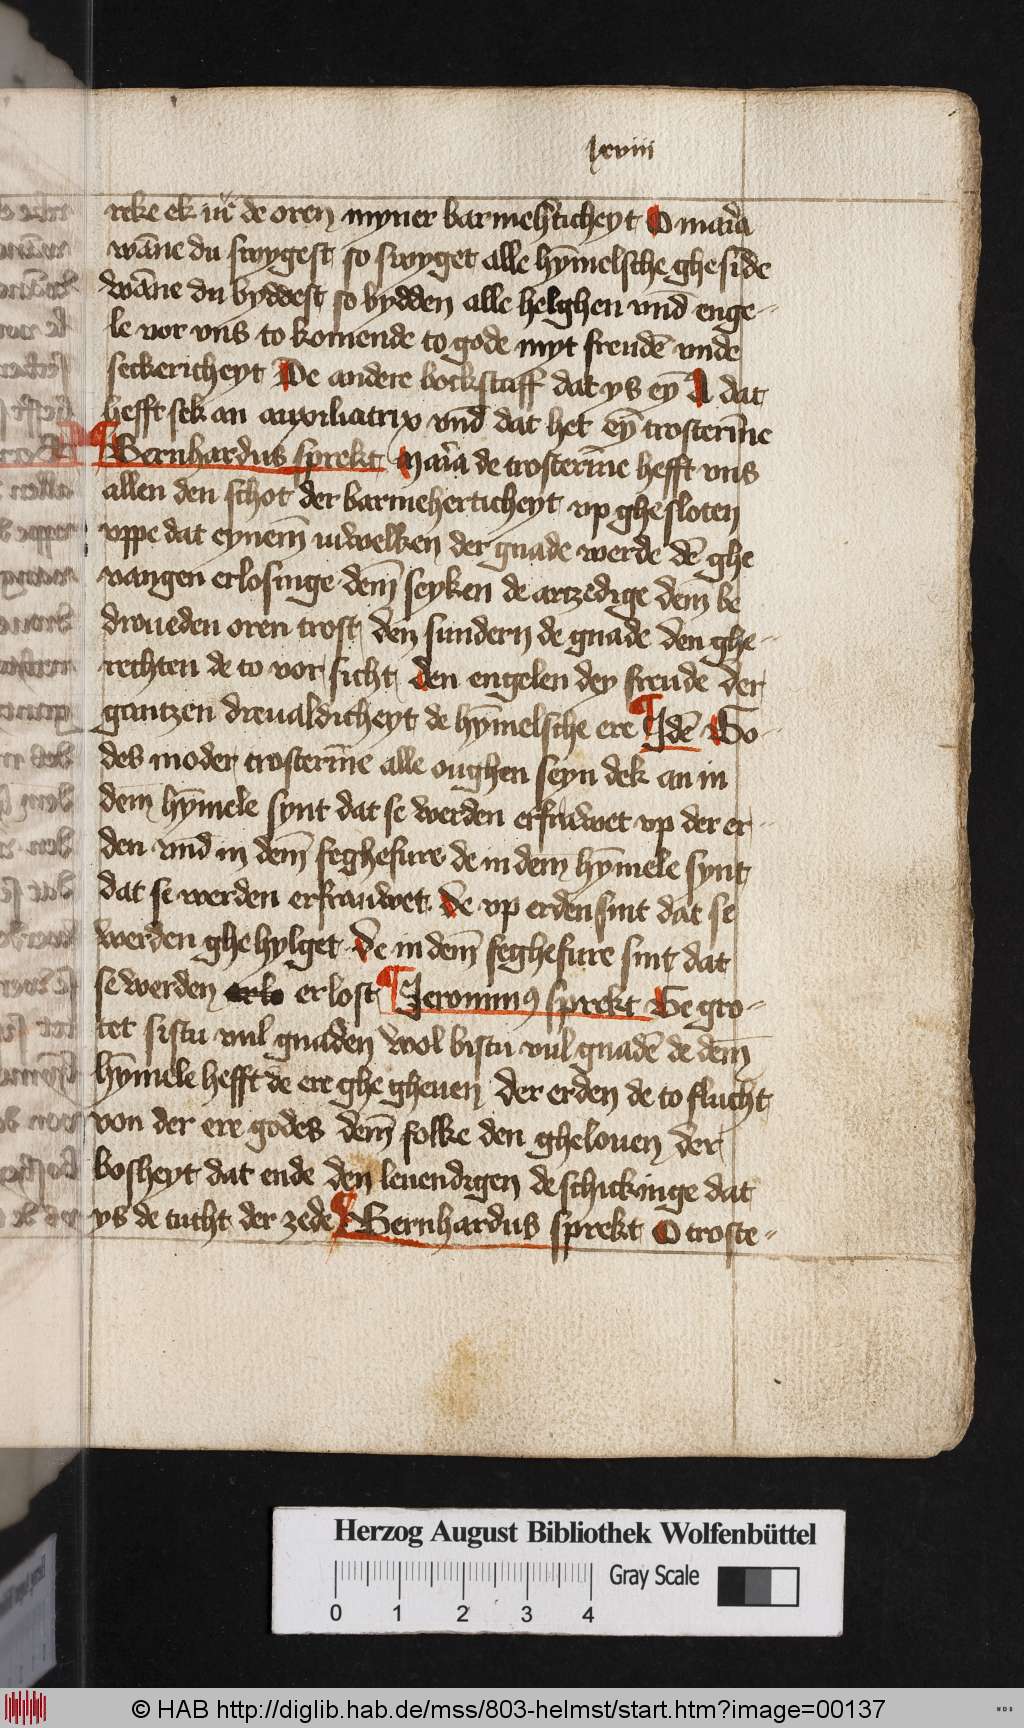 lxviii
reke ek iu̅ de oren myner barmeh̓ticheyt O mar̓ia
wān̄e du swygest so swyget alle hȳmelsche ghesīde
wān̄e du byddest so bydden alle helghen vnd̄ enge-
le vor vns to komende to gode myt freudē vnde
seckericheyt De andere bockstaff dat ys eȳ A dat
hefft sek an auxiliatrix vnd̄ dat het eȳ trosterīne
Bernhardus sprekt Mar̓ia de trosterīne hefft vns
allen den schot der barmeherticheyt vp ghesloten
vppe dat eynem̄ iuwelken der gnade werde dē ghe
vangen erlosinge dem̄ seyken de artzedige dem be
droueden oren trost den sundern de gnade den ghe-
rechten de to vor sicht den engelen dey freude der
gantzen dreualdicheyt de hȳmelsche ere Idē Go-
des moder trosterīne alle oughen seyn dek an in
dem̄ hȳmele synt dat se werden erfrawet vp der er-
den vnd̄ in dem̄ feghefure de in dem̄ hȳmele synt
dat se werden erfrauwet de vp erden sint dat se
werden ghe hylget De in dem̄ feghefure sint dat
se werden erlost Jeronimus sprekt Ge gro-
tet sistu vul gnaden wol bistu vul gnadē de dem̄
hȳmele hefft de ere ghe gheuen der erden de to flucht
von der ere godes dem̄ folke den ghelouen der
bosheyt dat ende den leuendigen de schickinge dat
ys de tucht der zede Bernhardus sprekt O troste-
Herzog August Bibliothek Wolfenbüttel
Gray Scale
0 1 2 3 4
© HAB http://diglib.hab.de/mss/803-helmst/start.htm?image=00137